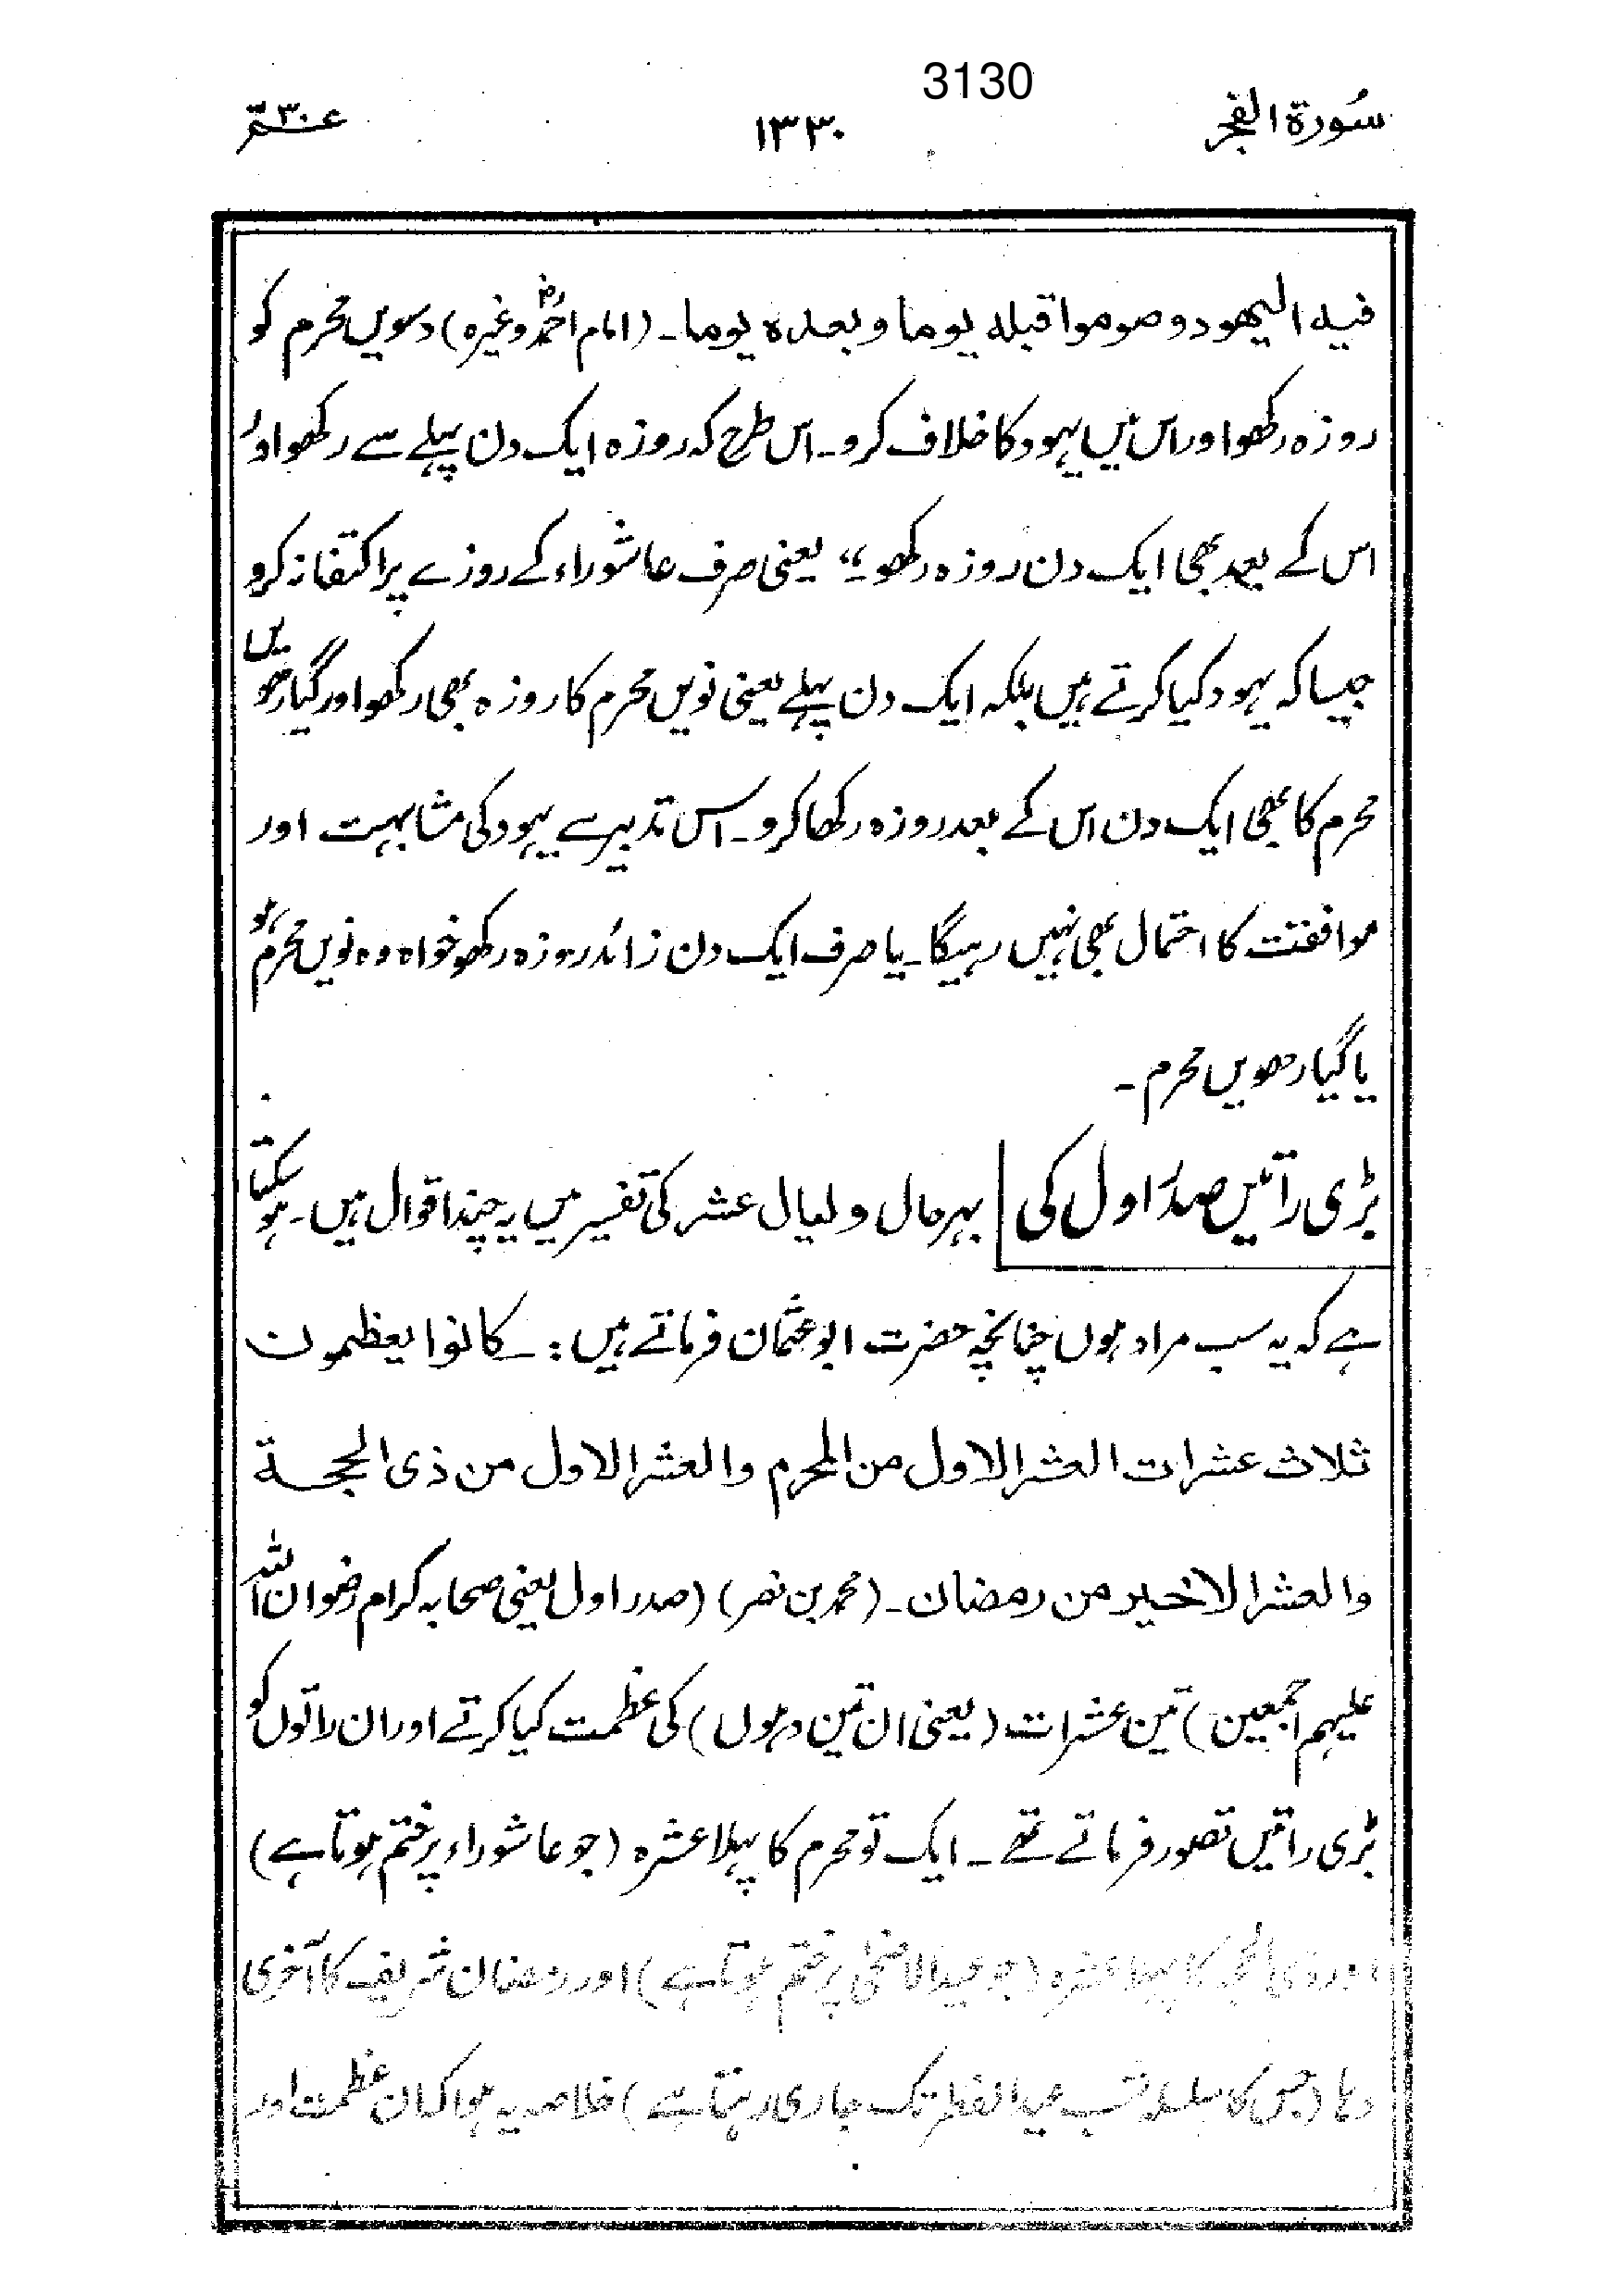 3130
سُورة الفجر ١٣٣٠ عمّ ٣٠
فيه اليهود وصوموا قبله يوما وبعده يوما۔ (امام احمدؒ وغیرہ) دسویں محرم کو
روزہ رکھو اور اس میں یہود کا خلاف کرو۔ اس طرح کہ روزہ ایک دن پہلے سے رکھو اور
اس کے بعد بھی ایک دن روزہ رکھو۔“ یعنی صرف عاشوراء کے روزے پر اکتفا نہ کرو
جیسا کہ یہود کیا کرتے ہیں بلکہ ایک دن پہلے یعنی نویں محرم کا روزہ بھی رکھو اور گیارھویں
محرم کا بھی ایک دن اس کے بعد روزہ رکھا کرو۔ اس تدبیر سے یہود کی مشابہت اور
موافقت کا احتمال بھی نہیں رہیگا۔ یا صرف ایک دن زائد روزہ رکھو خواہ وہ نویں محرم ہو
یا گیارھویں محرم۔
بڑی راتیں صدر اول کی بہرحال ولیال عشر کی تفسیر میں یہ چند اقوال ہیں۔ ہو سکتا
ہے کہ یہ سب مراد ہوں چنانچہ حضرت ابو عثمان فرماتے ہیں :۔ كانوا يعظمون
ثلاث عشرات العشر الاول من المحرم والعشر الاول من ذى الحجة
والعشر الاخير من رمضان۔ (محمد بن نصر) (صدر اول یعنی صحابہ کرام رضوان اللہ
علیہم اجمعین) تین عشرات (یعنی ان تین دہوں) کی عظمت کیا کرتے اور ان راتوں کو
بڑی راتیں تصور فرماتے تھے۔ ایک تو محرم کا پہلا عشرہ (جو عاشوراء پر ختم ہوتا ہے)
اور ذی الحجہ کا پہلا عشرہ (جو عید الاضحیٰ پر ختم ہوتا ہے) اور رمضان شریف کا آخری
دہا (جس کا سلسلہ شب عید الفطر تک جاری رہتا ہے) خلاصہ یہ ہوا کہ ان عظمت اور